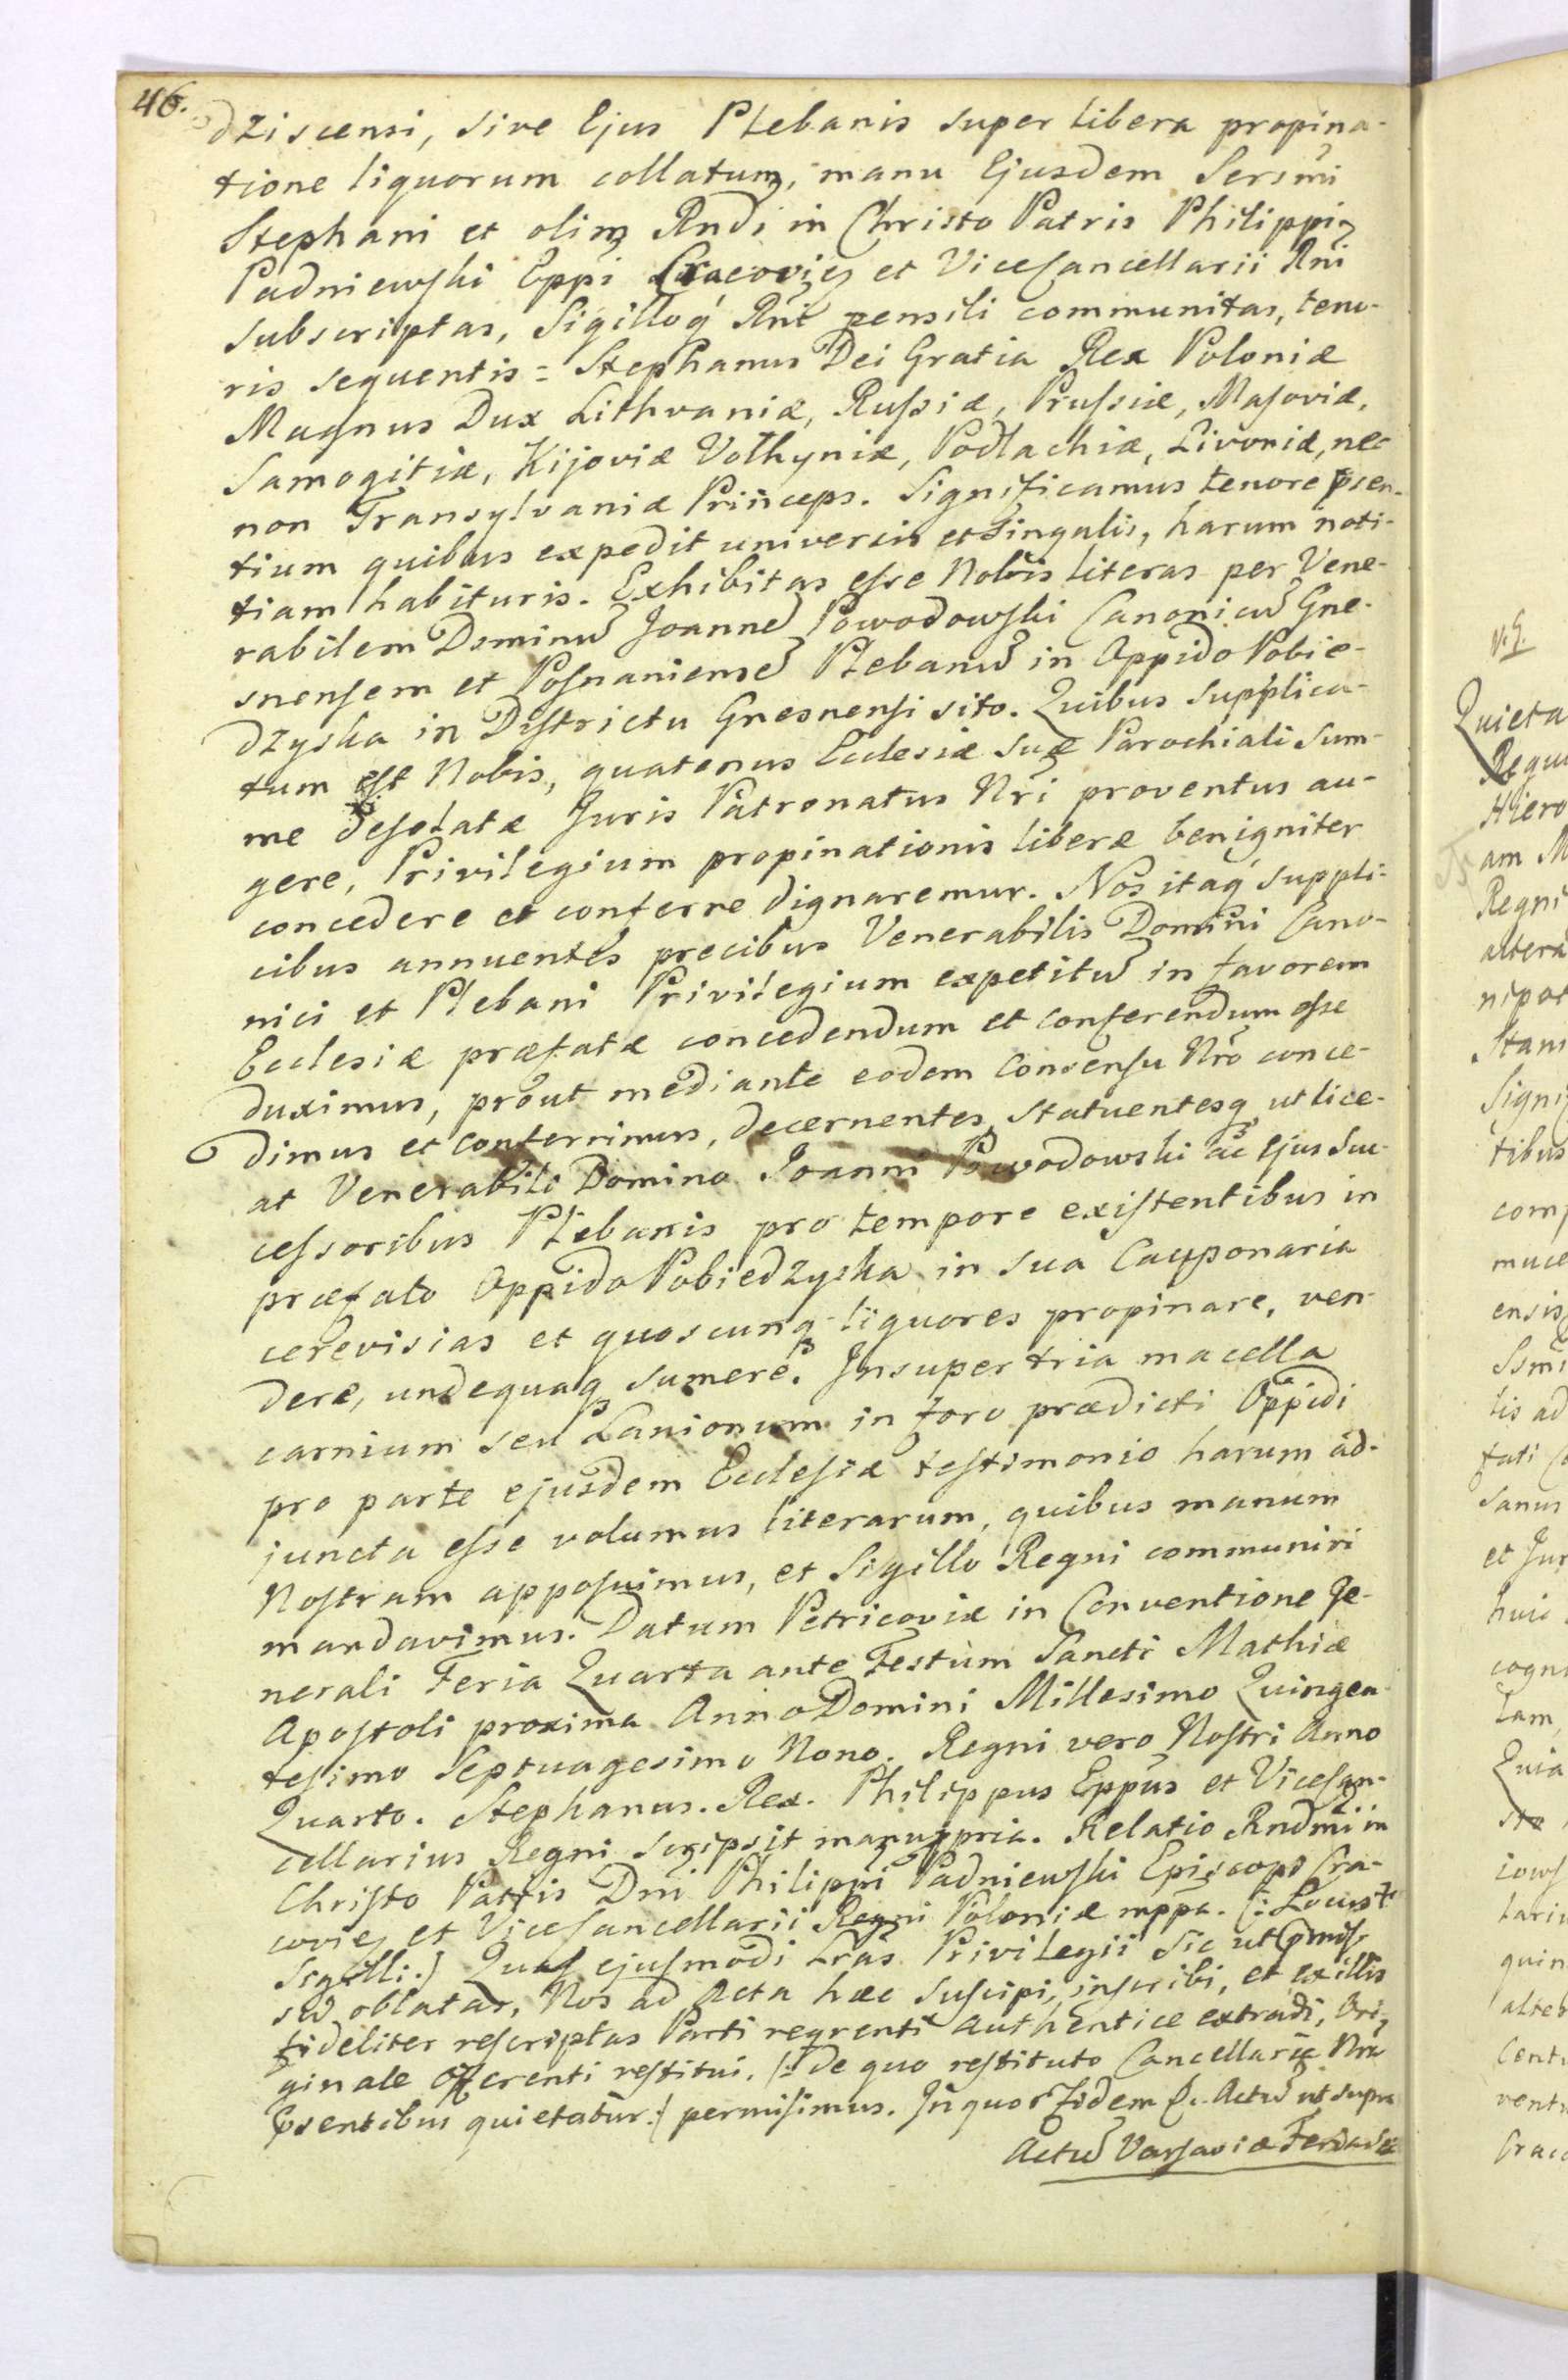 46.
dziscensi, sive Ejus Plebanis super libera propina-
tione liquorum collatum, manu Ejusdem Sersmi
Stephani et olim Rndi in Christo Patris Philippi
Padniewski Eppi Cracovien et Vicecancellarii Rni
subscriptas, Sigilloq Rni pensili communitas, teno-
ris sequentis = Stephanus Dei Gratia Rex Poloniæ
Magnus Dux Lithvaniæ, Russiæ, Prussiæ, Masoviæ,
Samogitiæ, Kijoviæ Volhyniæ, Podlachiæ, Livoniæ, nec
non Transylvaniæ Princeps. Significamus tenore psen-
tium quibus expedit universis et singulis, harum noti-
tiam habituris. Exhibitas esse Nobis literas per Vene-
rabilem Dominũ Joannẽ Powodowski Canonicũ Gne-
snensem et Posnaniensẽ Plebanũ in Oppido Pobie-
dzyska in Districtu Gnesnensi sito. Quibus supplica-
tum est Nobis, quatenus Ecclesiæ suæ Parochiali sum-
me desolatæ Juris Patronatus Nri proventus au-
gere, Privilegium propinationis liberæ benigniter
concedere et conferre dignaremur. Nos itaq suppli-
cibus annuentes precibus Venerabilis Domini Cano-
nici et Plebani Privilegium expetitũ in favorem
Ecclesiæ præfatæ concedendum et conferendum esse
duximus, prout mediante eodem Consensu Nro conce-
dimus et conferrimus, decernentes, statuentesq ut lice-
at Venerabili Domino Joanni Powodowski ac Ejus Suc-
cessoribus Plebanis pro tempore existentibus in
præfato Oppido Pobiedzyska in sua Cauponaria
cerevisias et quoscunq liquores propinare, ven-
dere, undequaq sumere. Insuper tria macella
carnium seu Lanionum in foro prædicti Oppidi
pro parte ejusdem Ecclesiæ testimonio harum ad-
juncta esse volumus literarum, quibus manum
Nostram apposuimus, et Sigillo Regni communiri
mandavimus. Datum Petricoviæ in Conventione Ge-
nerali Feria Quarta ante Festum Sancti Mathiæ
Apostoli proxima Anno Domini Millesimo Quingen-
tesimo Septuagesimo Nono. Regni vero Nostri Anno
Quarto. Stephanus. Rex. Philippus Eppus et Vicecan-
cellarius Regni scripsit manu ppria. Relatio Rndmi in
Christo Patris Dni Philippi Padniewski Episcopi Cra-
covien et Vicecancellarii Regni Poloniæ mppa. (: Locus
Sigilli:) Quas ejusmodi Lras Privilegii sic ut
oblatas, Nos ad Acta hæc suscipi, inscribi, et ex illis
fideliter rescriptas Parti reqrenti authentice extradi, Ori-
ginale offerenti restitui, (: de quo restituto Cancellariæ Nra
psentibus quietatur :) permisimus. In quor fidem &. Actũ ut supra
Actũ Varsaviæ Feria
V. S.
Quieta
Regni
Hiero
am M
Regni
altera
nipot
Stani
Signi
tibus
comp
muce
ensis
Ssmi
tis ad
fati
sanus
et Jur
huic
cogni
tam
Quia
sto
iows
lariu
quin
alter
Centu
ventu
Crac